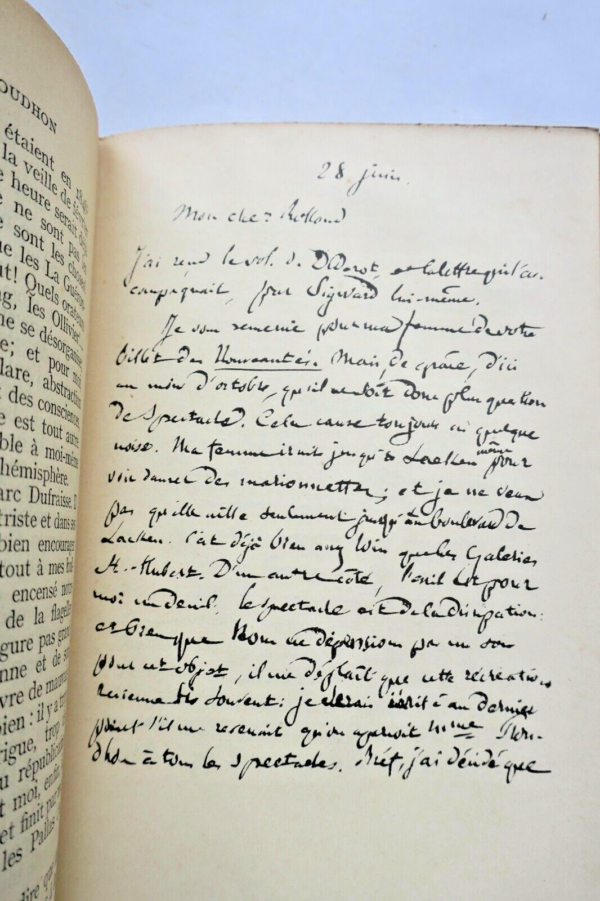 OUDHON
étaient en
la veille de
heure serait
ne ne sont pas
sont les choses
que les La Guéron
ut! Quels orateurs
ng, les Ollivier
ne se désorganise
e; et pour moi
lare, abstraction
des consciences
e est tout autre
ble à moi-même
hémisphère.
arc Dufraisse. Il
triste et dans ses
bien encourager
tout à mes
encensé notre
de la flagellé
gure pas grand
nne et de
vre de mauvais
bien : il y a
rigue, trop
u républicain
t moi,
et finit par
les Pallas
dire que
28 juin.
Mon cher Rolland
J'ai rend le vol. de Diderot, et la lettre qui l'ac-
compagnait, pour Sigward lui-même.
Je vous remercie pour ma femme de votre
billet des Nouveautés. Mais, de grâce, d'ici
au mois d'octobre, qu'il ne soit donc plus question
de spectacles. Cela cause toujours ici quelque
noise. Ma femme irait jusqu'à Laeken même pour
voir danser des marionnettes; et je ne veux
pas qu'elle aille seulement jusqu'au boulevard de
Laeken. C'est déjà bien assez loin que les Galeries
St-Hubert. D'un autre côté, l'exil est pour
moi un deuil, le spectacle est de la dissipation:
et bien que nous ne dépensions pas un sou
pour cet objet, il me déplaît que cette récréation
revienne si souvent: je serais irrité au dernier
point s'il me revenait qu'on aperçoit Mme Prou-
dhon à tous les spectacles. Bref, j'ai décidé que